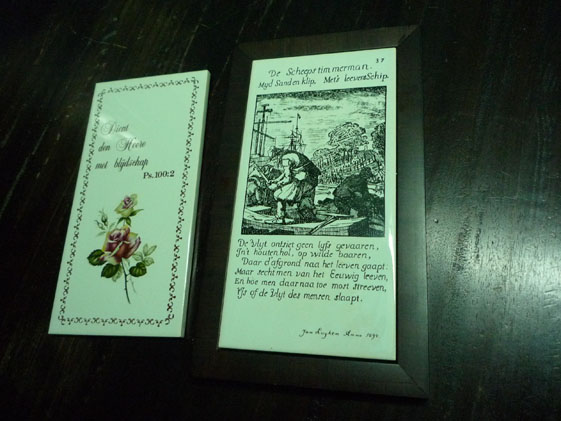 Dient
den Heere
met blijdschap
Ps. 100:2
37
De Scheepstimmerman.
Myd Sand en klip, Met's leevens Schip.
De Vlyt ontziet geen lyfs gevaaren,
In't houten hol, op wilde baaren,
Daar d'afgrond naa het leeven gaapt:
Maar recht men van het Eeuwig leeven,
En hoe men daar naa toe most streeven,
Ys of de Vlyt des mensen slaapt.
Jan Luyken Anno 1694